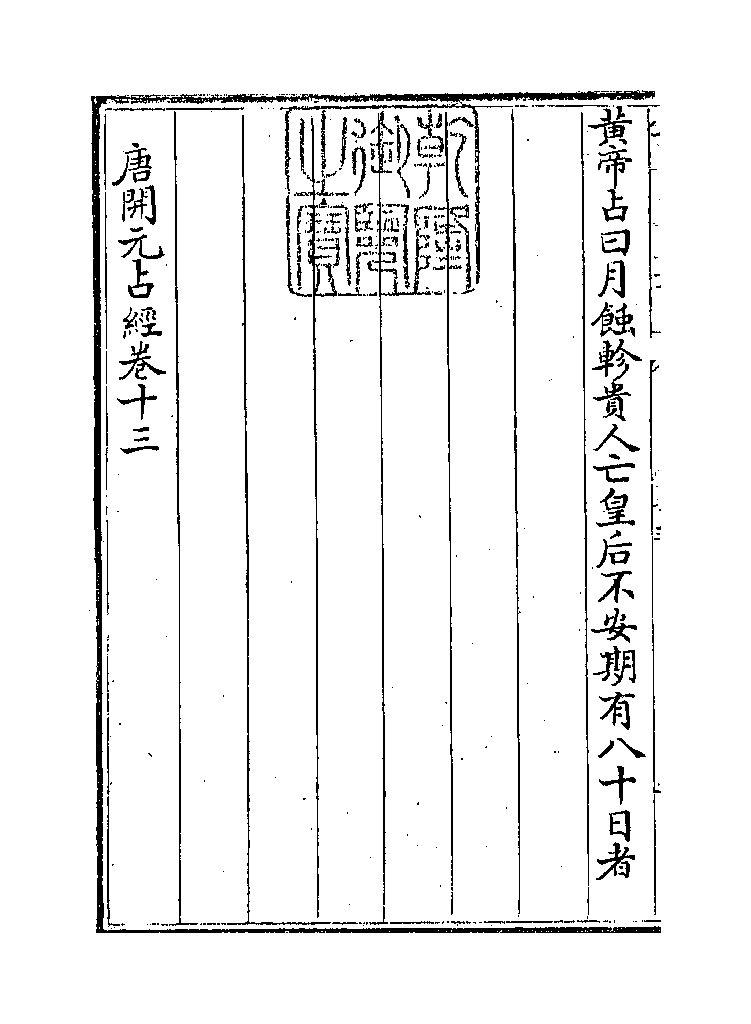 黄帝占曰月蝕軫貴人亡皇后不安期有八十日者
乾隆
御覽
之寶
唐開元占經卷十三